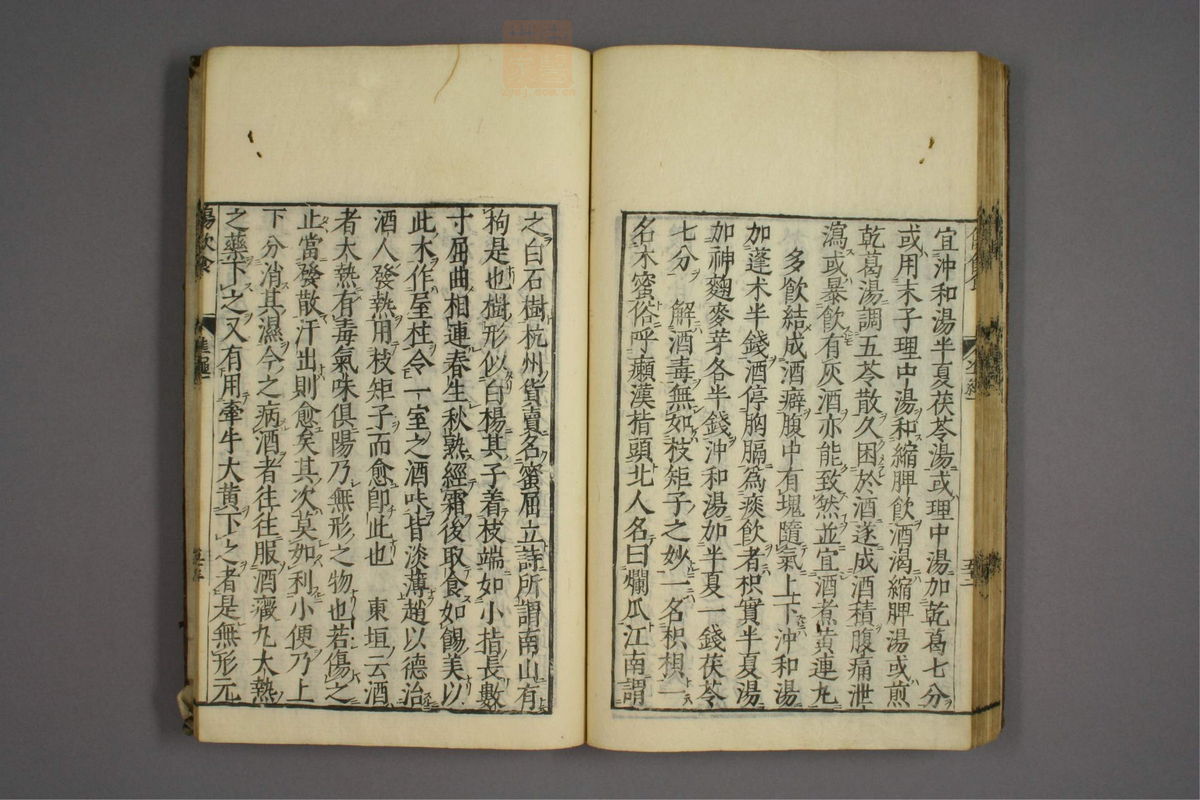 宜沖和湯半夏茯苓湯或理中湯加乾葛七分
或用末子理中湯和縮脾飲酒渴縮脾湯或煎
乾葛湯調五苓散久困於酒遂成酒積腹痛泄
瀉或暴飲有灰酒亦能致然並宜酒煮黄連丸
多飲結成酒癖腹中有塊隨氣上下沖和湯
加蓬朮半錢酒停胸膈爲痰飲者枳實半夏湯
加神麯麥芽各半錢沖和湯加半夏一錢茯苓
七分　解酒毒無如枝矩子之妙一名枳椇一
名木蜜俗呼癩漢指頭北人名曰爛瓜江南謂
之白石樹杭州貨賣名蜜屈立詩所謂南山有
枸是也樹形似白楊其子着枝端如小指長數
寸屈曲相連春生秋熟經霜後取食如餳美以
此木作屋柱令一室之酒味皆淡薄趙以德治
酒人發熱用枝矩子而愈卽此也　東垣云酒
者大熱有毒氣味俱陽乃無形之物也若傷之
止當發散汗出則愈矣其次莫如利小便乃上
下分消其濕今之病酒者往往服酒癥丸大熱
之藥下之又有用牽牛大黄下之者是無形元
傷飲食